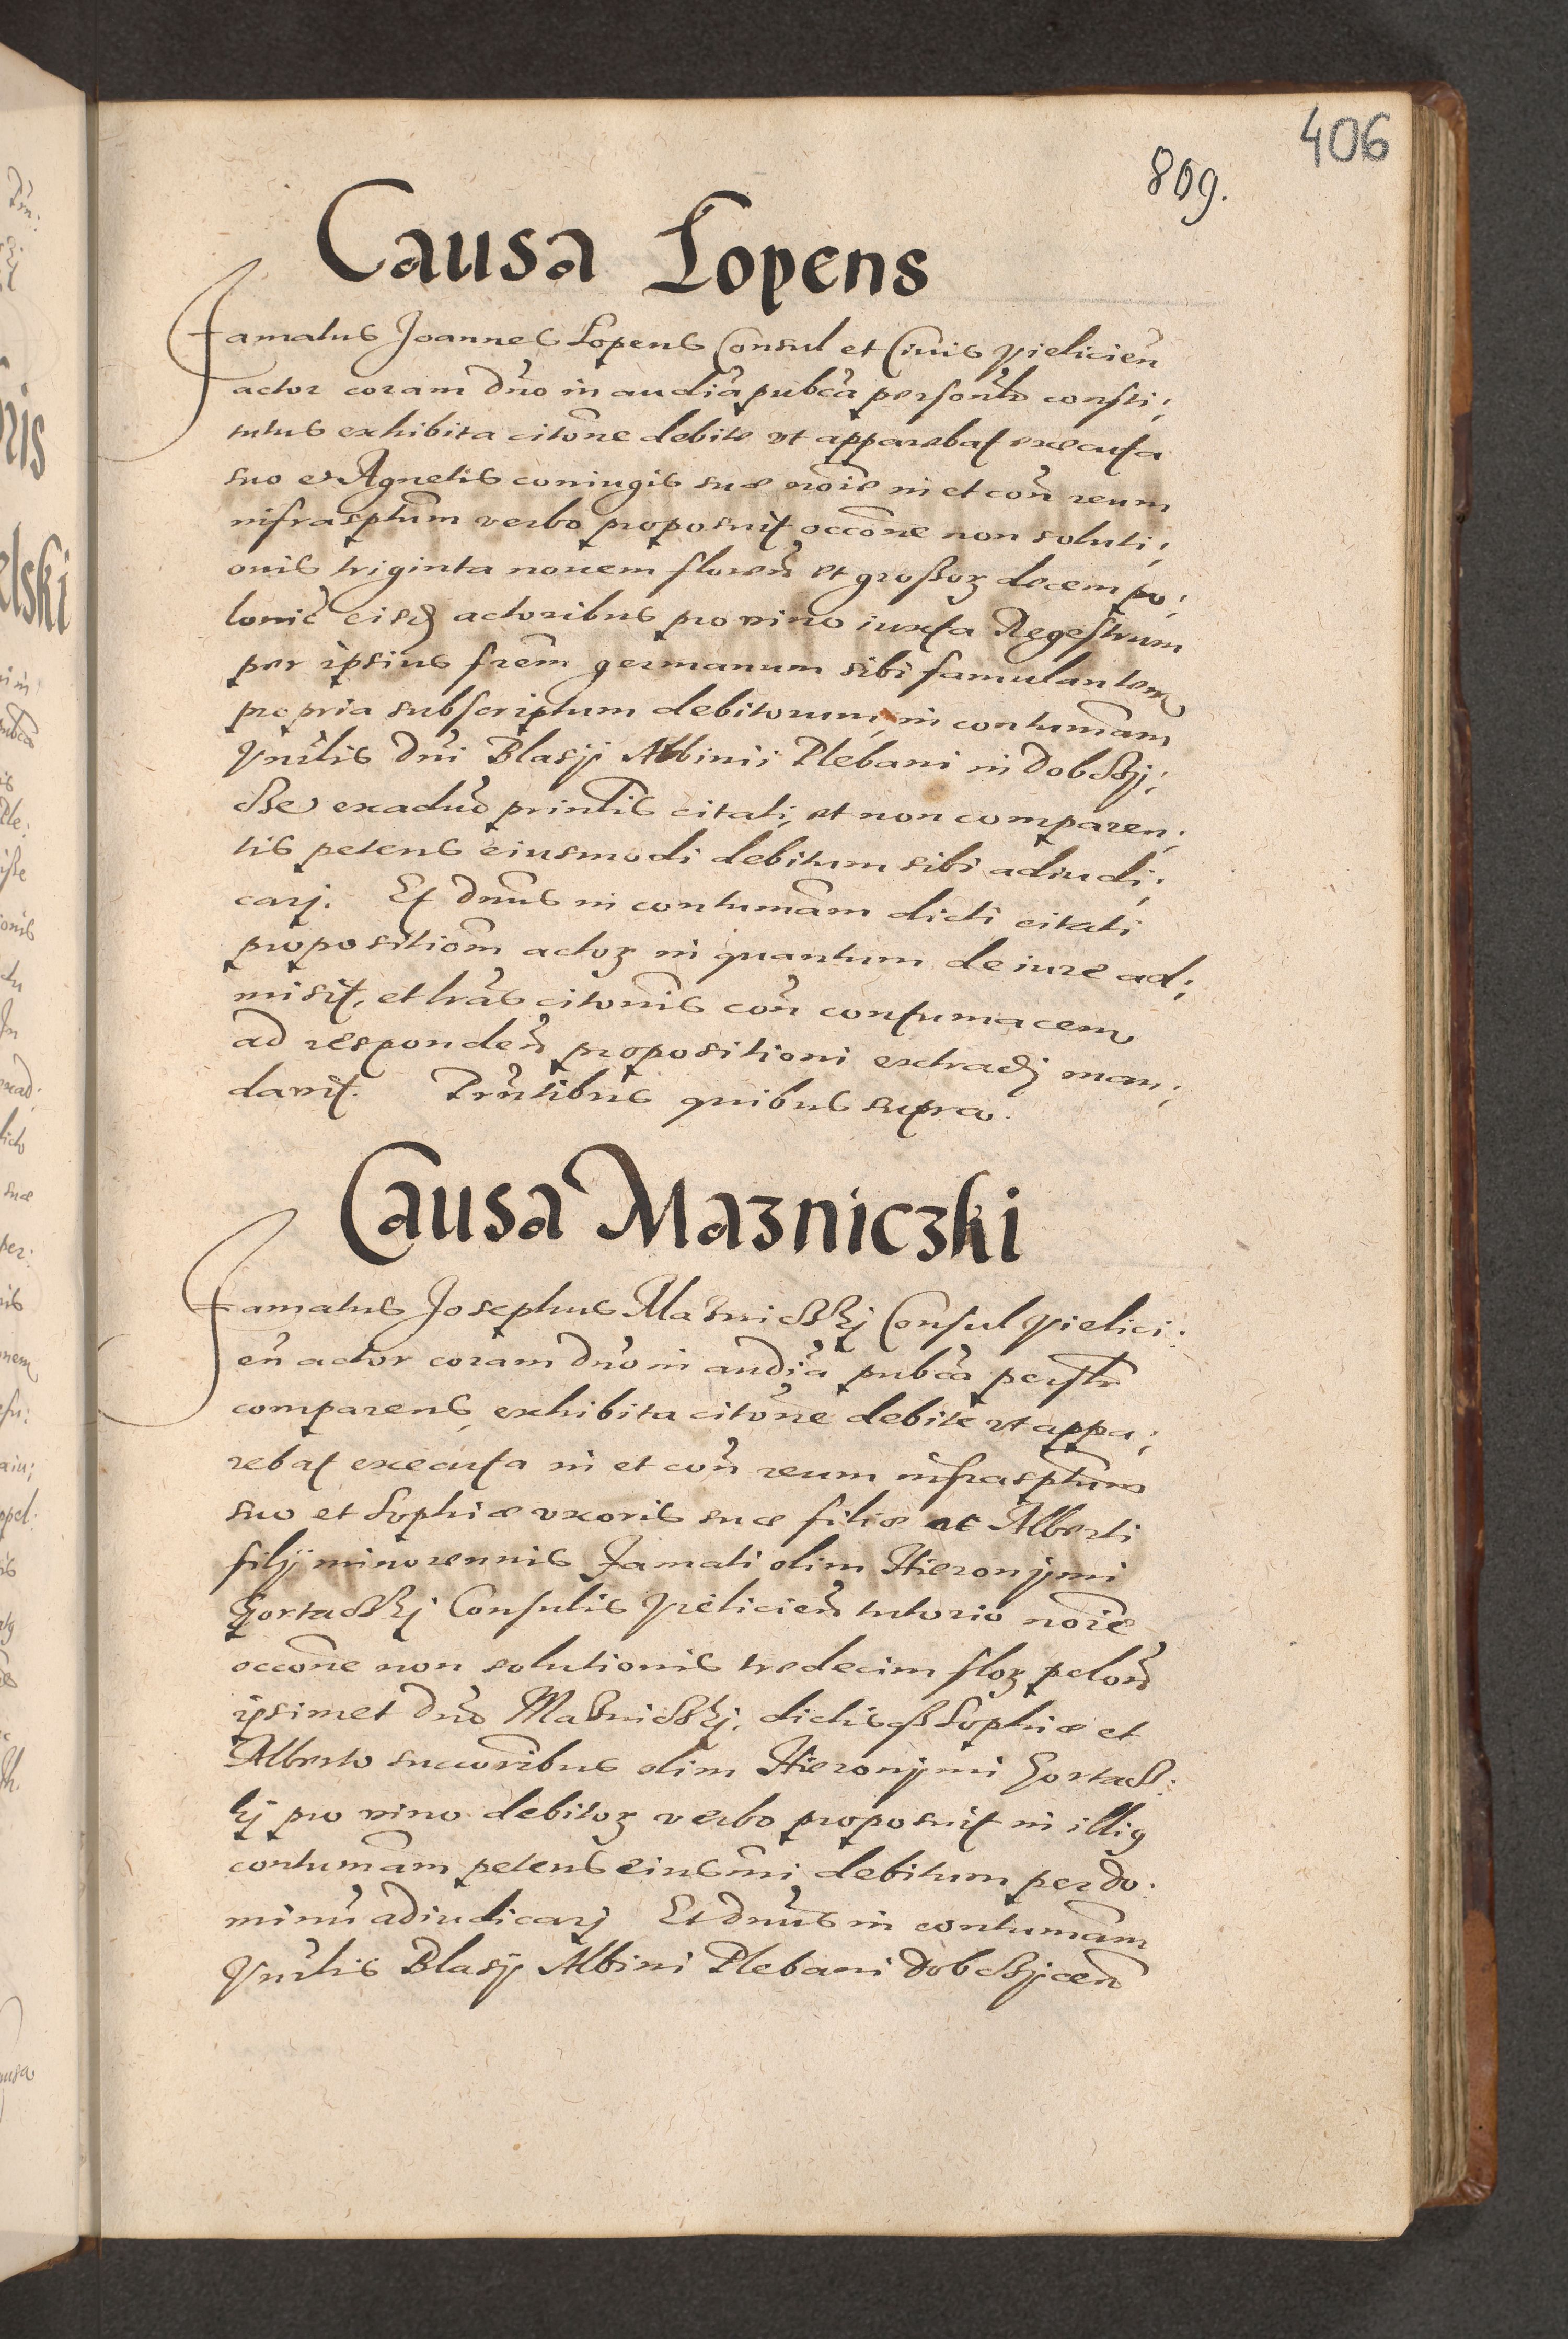 406
809.
Causa Lopens
Famatus Joannes Lopens Consul et Civis Vielicieñ
actor coram dño in audiã pubcã personlr consti;
tutus exhibita citone debite vt apparebat executa
suo et Agnetis coniugis suæ noie in et coñ reum
infrasptum verbo proposuit occone non soluti;
onis triginta novem floreñ et großorz decem po;
lonic eisd actoribus pro vino iuxta Regestrum
per ipsius frem germanum sibi famulantem
propria subscriptum debitorum, in contumãm
Vnrlis Dni Blasÿ Albinii Plebani in Dobczÿ;
cze ex aduo printis citati, et non comparen;
tis petens eiusmodi debitum sibi adiudi;
carj. Et Dnus in contumãm dicti citati
propositiom actorz in quantum de iure ad;
misit, et lras citonis coñ contumacem
ad respondeñ propositioni extradj man;
davit. Prñtibus quibus supra.
Causa Mazniczki
Famatus Josephus Mazniczkj Consul Vielici:
eñ actor coram dño in audiã pubcã personlr
comparens, exhibita citone debite vt appa;
rebat executa in et coñ reum infrasptum
suo et Sophiæ vxoris suæ filiæ ac Alberti
filÿ minorennis Famati olim Hieronÿmi
Gortaczkj Consulis Vielicieñ tutorio noie
occone non solutionis tredecim florz poloñ
ipsimet dno Mazniczkj, dictisqz Sophiæ et
Alberto succoribus olim Hieronÿmi Gortacz:
kj pro vino debitorz verbo proposuit in illig
contumãm petens eiusmi debitum per do:
minũ adiudicarj Et Dnus in contumãm
Vnrlis Blasÿ Albini Plebani Dobczÿceñ